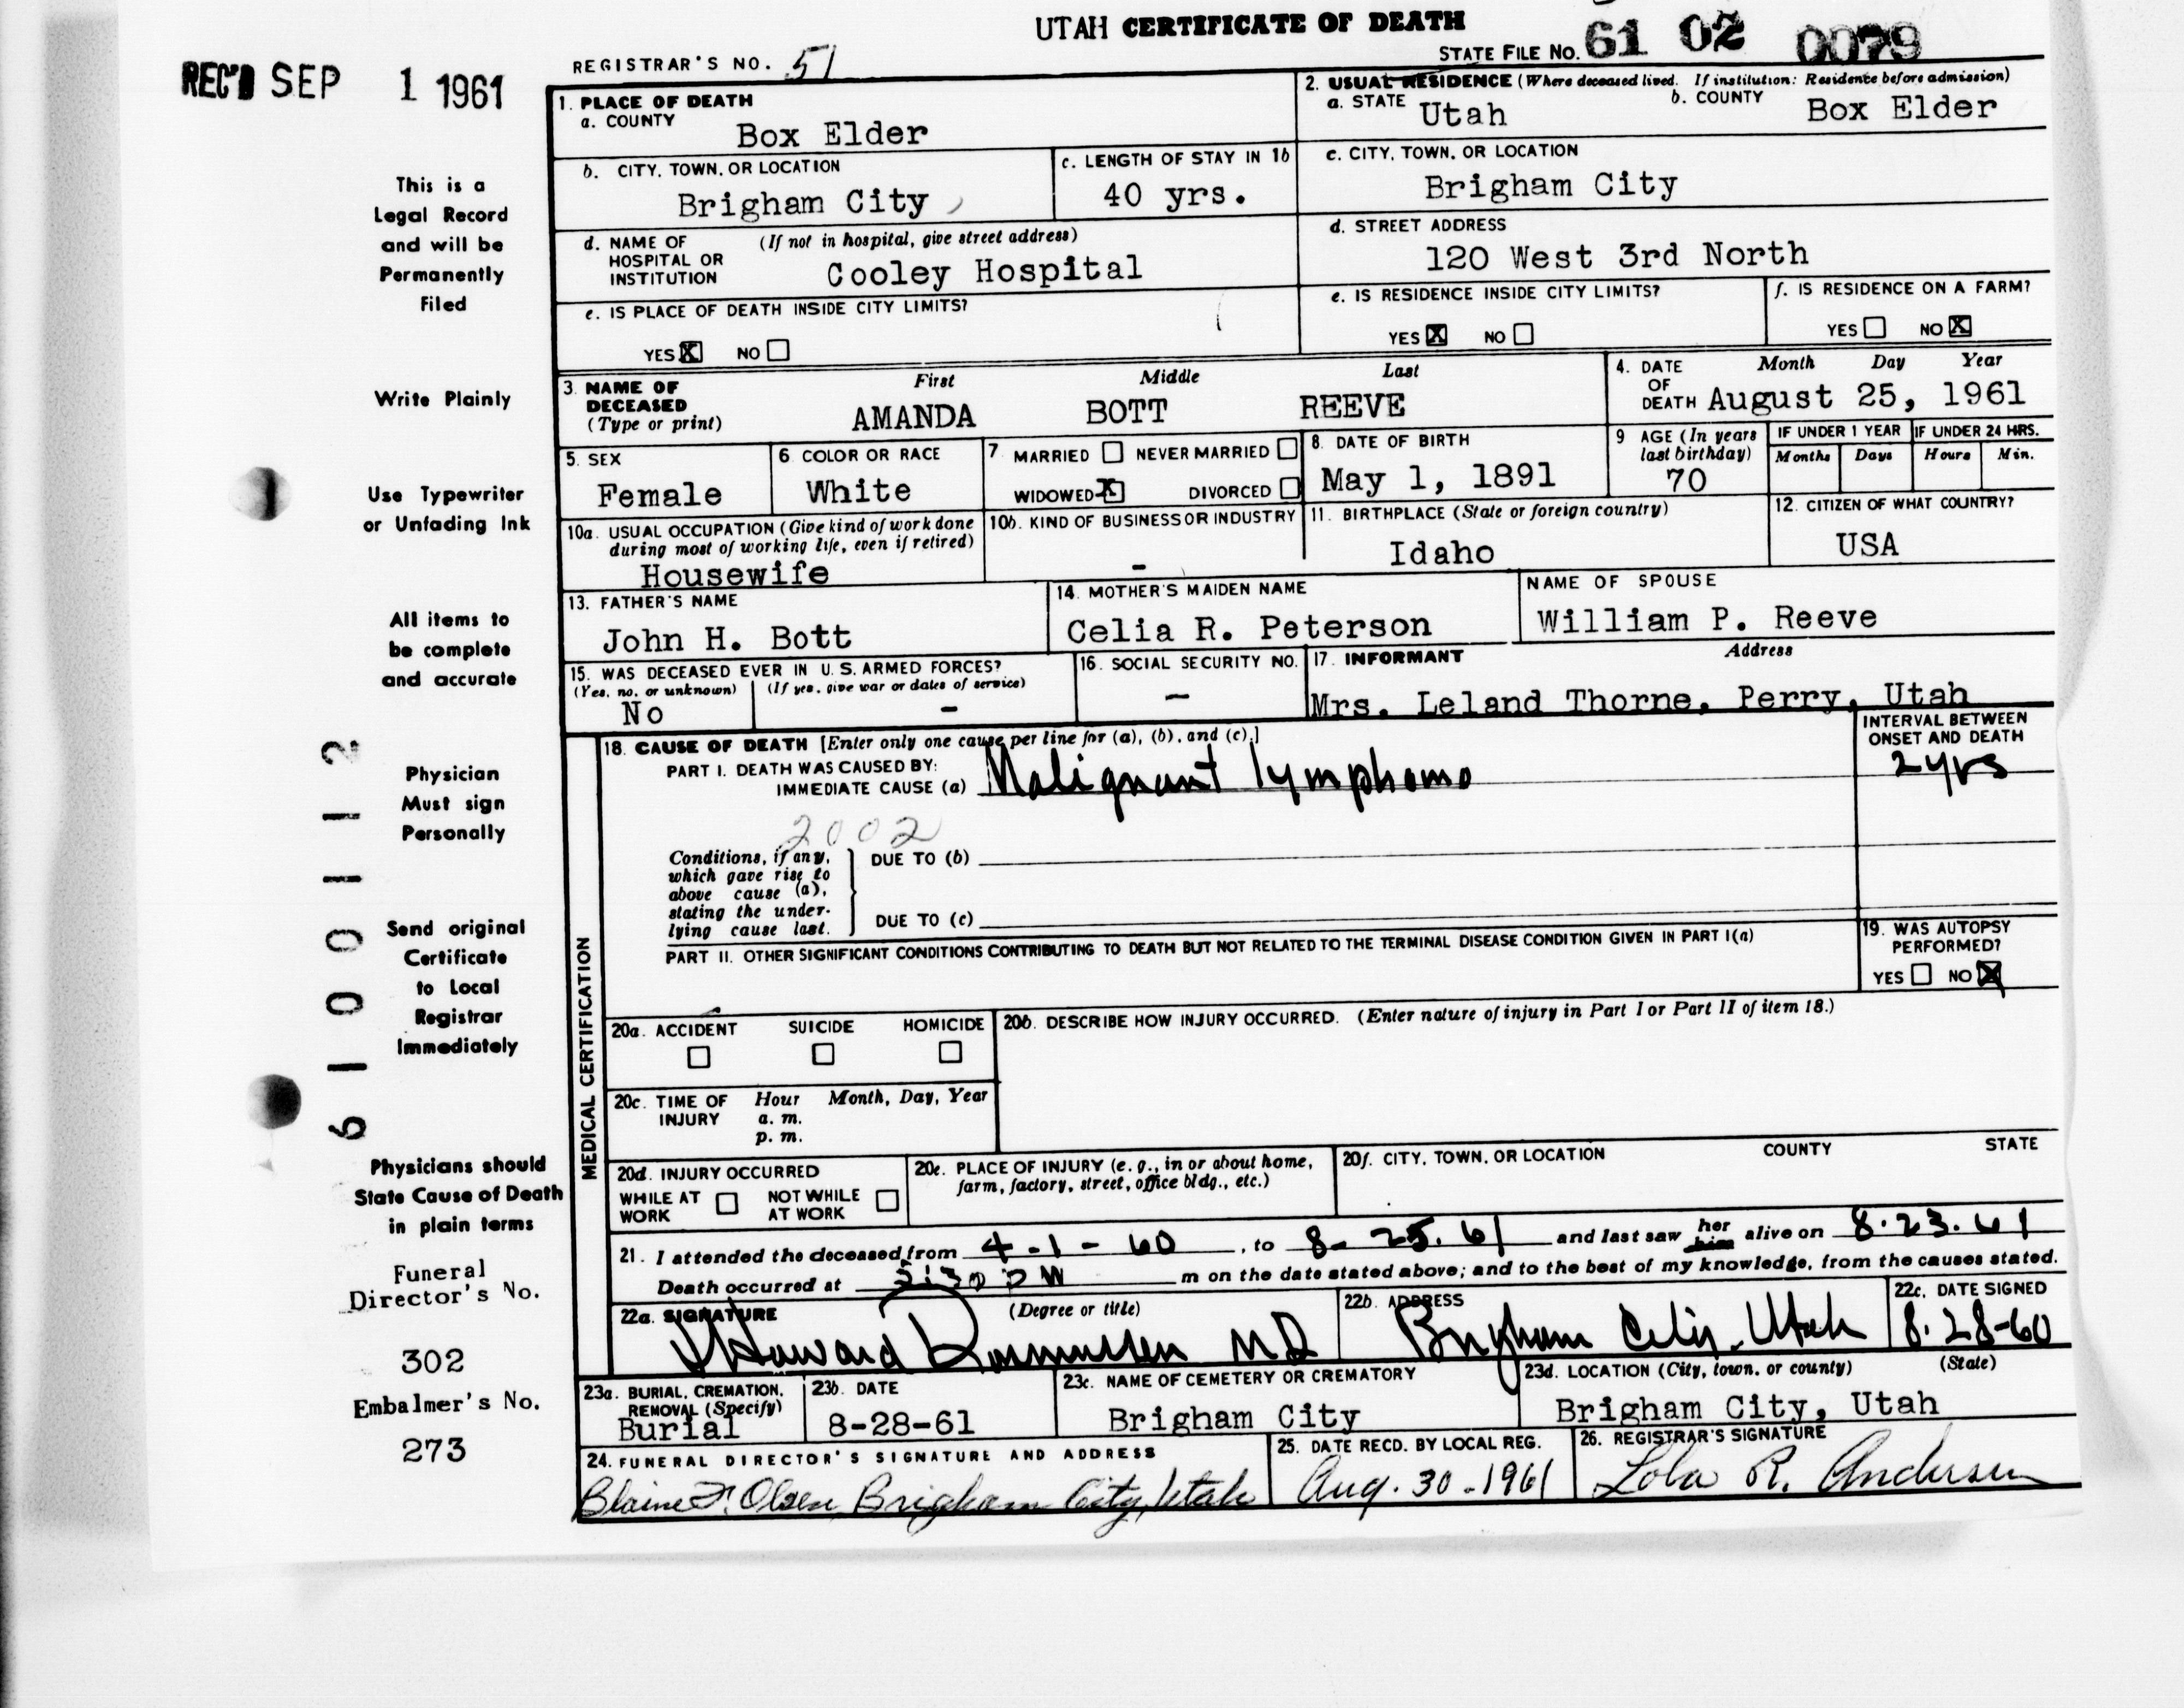 UTAH CERTIFICATE OF DEATH
STATE FILE NO. 61 02 0079
REGISTRAR'S NO. 51
REC'D SEP 1 1961
1. PLACE OF DEATH
a. COUNTY
Box Elder
2. USUAL RESIDENCE (Where deceased lived. If institution: Residence before admission)
a. STATE Utah b. COUNTY Box Elder
b. CITY, TOWN, OR LOCATION
Brigham City
c. LENGTH OF STAY IN 1b
40 yrs.
c. CITY, TOWN, OR LOCATION
Brigham City
d. NAME OF HOSPITAL OR INSTITUTION (If not in hospital, give street address)
Cooley Hospital
d. STREET ADDRESS
120 West 3rd North
e. IS PLACE OF DEATH INSIDE CITY LIMITS?
YES X NO
e. IS RESIDENCE INSIDE CITY LIMITS?
YES X NO
f. IS RESIDENCE ON A FARM?
YES NO X
3. NAME OF DECEASED (Type or print)
First Middle Last
AMANDA BOTT REEVE
4. DATE OF DEATH Month Day Year
August 25, 1961
5. SEX
Female
6. COLOR OR RACE
White
7. MARRIED NEVER MARRIED
WIDOWED X DIVORCED
8. DATE OF BIRTH
May 1, 1891
9 AGE (In years last birthday)
70
IF UNDER 1 YEAR
Months Days
IF UNDER 24 HRS.
Hours Min.
10a. USUAL OCCUPATION (Give kind of work done during most of working life, even if retired)
Housewife
10b. KIND OF BUSINESS OR INDUSTRY
-
11. BIRTHPLACE (State or foreign country)
Idaho
12. CITIZEN OF WHAT COUNTRY?
USA
13. FATHER'S NAME
John H. Bott
14. MOTHER'S MAIDEN NAME
Celia R. Peterson
NAME OF SPOUSE
William P. Reeve
15. WAS DECEASED EVER IN U.S. ARMED FORCES?
(Yes, no, or unknown) (If yes, give war or dates of service)
No -
16. SOCIAL SECURITY NO.
-
17. INFORMANT Address
Mrs. Leland Thorne, Perry, Utah
MEDICAL CERTIFICATION
18. CAUSE OF DEATH [Enter only one cause per line for (a), (b), and (c).]
PART I. DEATH WAS CAUSED BY:
IMMEDIATE CAUSE (a) Malignant lymphoma
INTERVAL BETWEEN ONSET AND DEATH
2 yrs
2002
Conditions, if any, which gave rise to above cause (a), stating the underlying cause last.
DUE TO (b)
DUE TO (c)
PART II. OTHER SIGNIFICANT CONDITIONS CONTRIBUTING TO DEATH BUT NOT RELATED TO THE TERMINAL DISEASE CONDITION GIVEN IN PART I(a)
19. WAS AUTOPSY PERFORMED?
YES NO X
20a. ACCIDENT SUICIDE HOMICIDE
20b. DESCRIBE HOW INJURY OCCURRED. (Enter nature of injury in Part I or Part II of item 18.)
20c. TIME OF INJURY Hour Month, Day, Year
a. m.
p. m.
20d. INJURY OCCURRED
WHILE AT WORK NOT WHILE AT WORK
20e. PLACE OF INJURY (e. g., in or about home, farm, factory, street, office bldg., etc.)
20f. CITY, TOWN, OR LOCATION COUNTY STATE
21. I attended the deceased from 4-1-60, to 8-25.61 and last saw her him alive on 8.23.61
Death occurred at m on the date stated above; and to the best of my knowledge, from the causes stated.
22a. SIGNATURE (Degree or title)
Howard Rasmussen MD
22b. ADDRESS
Brigham City, Utah
22c. DATE SIGNED
8.28-60
23a. BURIAL, CREMATION, REMOVAL (Specify)
Burial
23b. DATE
8-28-61
23c. NAME OF CEMETERY OR CREMATORY
Brigham City
23d. LOCATION (City, town, or county) (State)
Brigham City, Utah
24. FUNERAL DIRECTOR'S SIGNATURE AND ADDRESS
Blaine F. Olsen Brigham City, Utah
25. DATE RECD. BY LOCAL REG.
Aug. 30 - 1961
26. REGISTRAR'S SIGNATURE
Lola R. Andersen
This is a
Legal Record
and will be
Permanently
Filed
Write Plainly
Use Typewriter
or Unfading Ink
All items to
be complete
and accurate
Physician
Must sign
Personally
Send original
Certificate
to Local
Registrar
Immediately
Physicians should
State Cause of Death
in plain terms
Funeral
Director's No.
302
Embalmer's No.
273
61 00 112